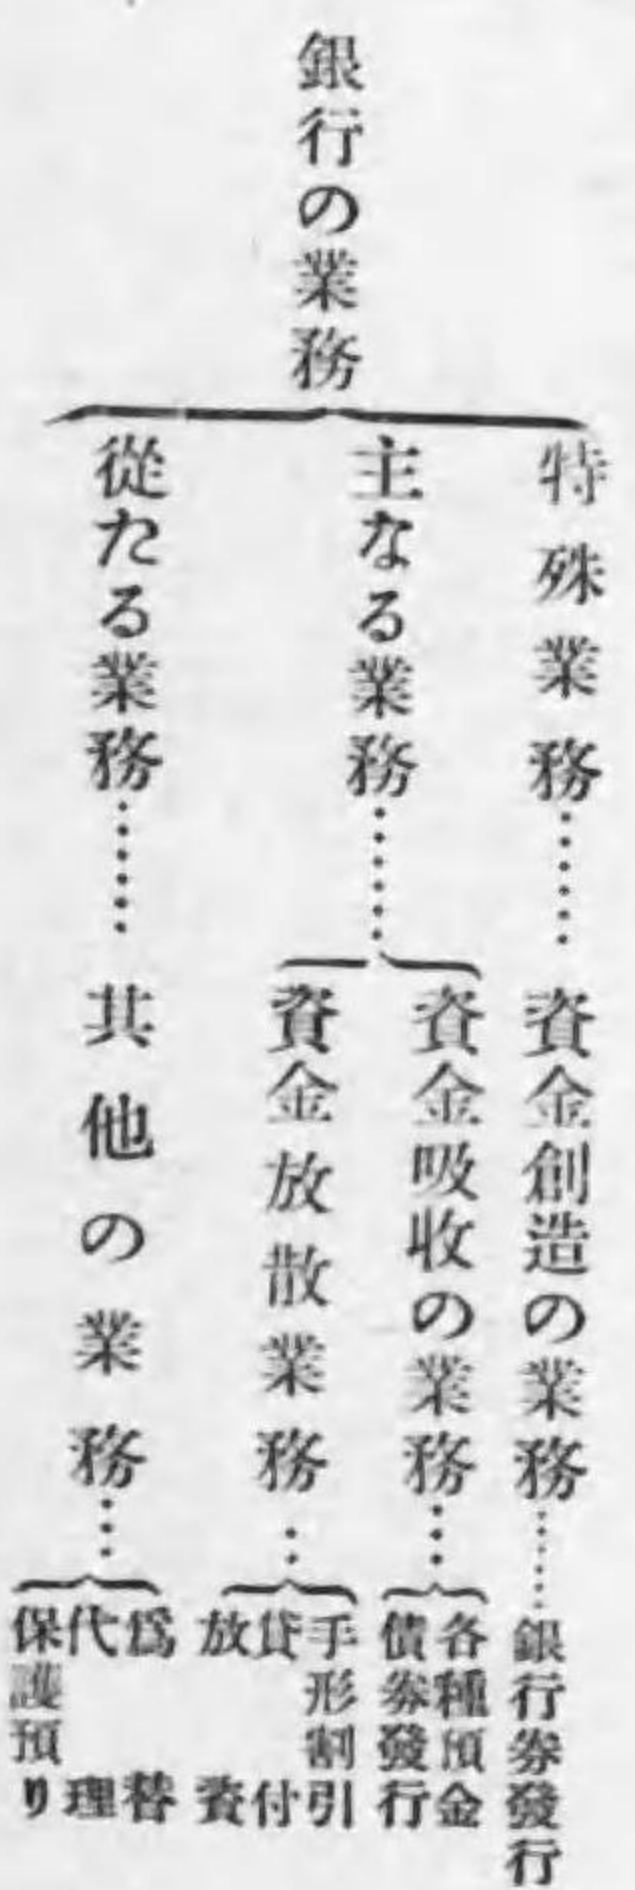 銀行の業務
特殊業務……資金創造の業務……銀行券發行
主なる業務……
資金吸收の業務…
各種預金
債券發行
資金放散業務…
手形割引
貸付
放資
從たる業務……其他の業務…
爲替
代理
保護預り